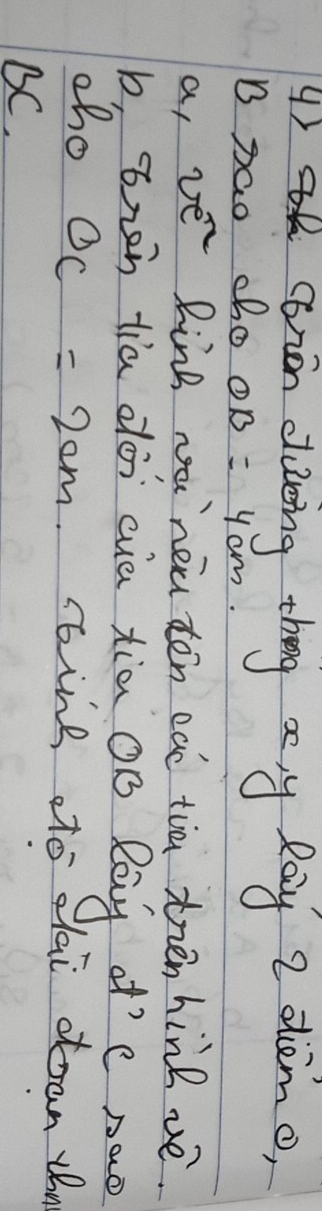 4) trên đường thẳng x,y lấy 2 điểm O,
B sao cho OB = 4cm.
a, vẽ hình và nêu tên các tia trên hình vẽ.
b, Trên tia đối của tia OB lấy đ' C sao
cho OC = 2cm. Tính độ dài đoạn thẳ
BC.